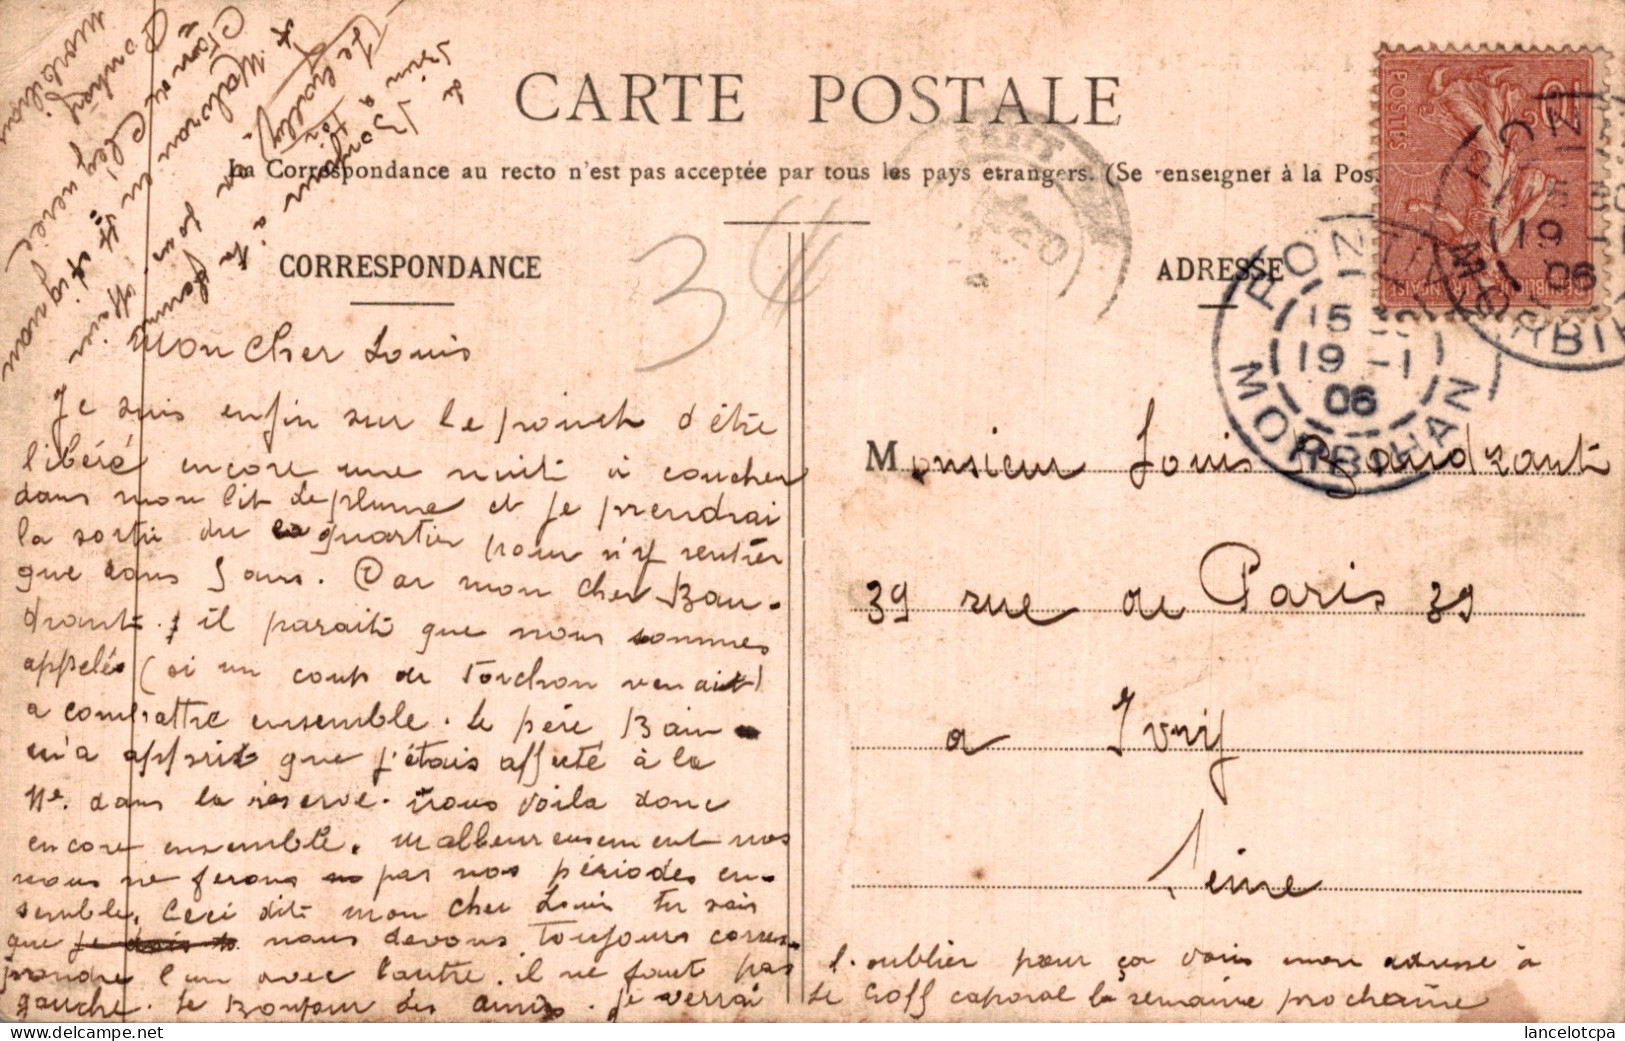 CARTE POSTALE
La Correspondance au recto n'est pas acceptée par tous les pays etrangers. (Se renseigner à la Pos
CORRESPONDANCE
ADRESSE
3
Mon Cher Louis
Je suis enfin sur le point d'être
libéré encore une nuit à coucher
dans mon lit de plume et je prendrai
la sortie du quartier pour n'y rentrer
que dans 5 ans. Car mon cher Bau-
drant, il parait que nous sommes
appelés (si un coup de Torchon venait)
a combattre ensemble. le père Bain
m'a appris que j'étais affecté à la
11e. dans la réserve. nous voila donc
encore ensemble. Malheureusement nos
nous ne ferons pas nos périodes en-
semble. Ceci dit mon cher Louis tu sais
que je dois te nous devons Toujours corres-
pondre l'un avec l'autre. il ne faut pas
l'oublier pour ça vois mon adresse à
gauche. le Bonjour des amis. je verrai
le Goff caporal la semaine prochaine
Monsieur Louis Baudrant
39 rue de Paris 39
a Ivry
Seine
POSTES
PONTIVY
15
19 -1
06
MORBIHAN
PONTIVY
19 -1
06
MORBIHAN
de
Bonjour à ta
lancelotcpa
www.delcampe.net